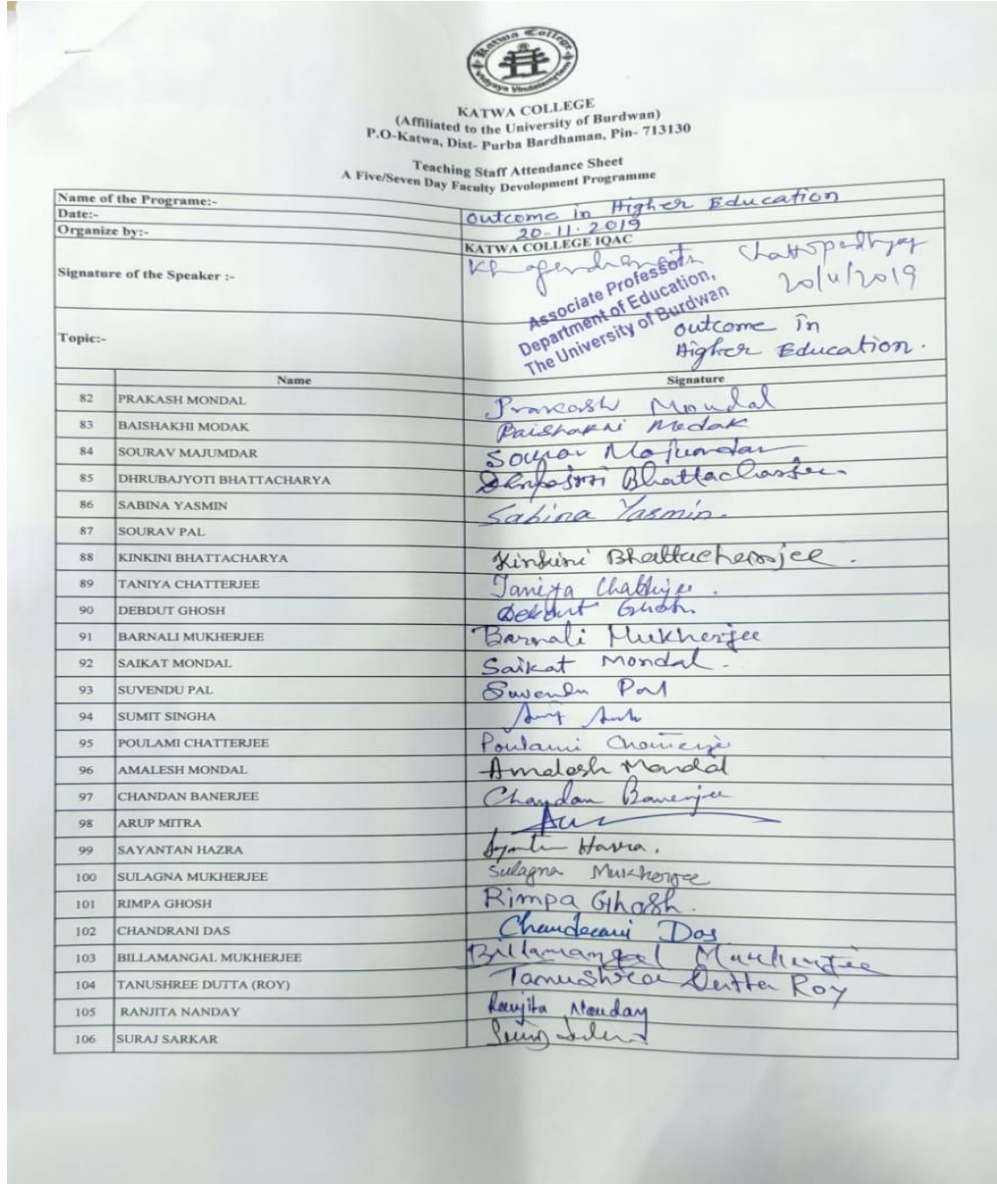 Katwa College
Vidyaya Vindateamritam
KATWA COLLEGE
(Affiliated to the University of Burdwan)
P.O-Katwa, Dist- Purba Bardhaman, Pin- 713130
Teaching Staff Attendance Sheet
A Five/Seven Day Faculty Devolopment Programme
Name of the Programe:- Outcome in Higher Education
Date:- 20-11-2019
Organize by:- KATWA COLLEGE IQAC
Signature of the Speaker :- Khagendranath Chattopadhyay
20/11/2019
Associate Professor
Department of Education,
The University of Burdwan
Topic:- Outcome in
Higher Education.
Name Signature
82 PRAKASH MONDAL Prakash Mondal
83 BAISHAKHI MODAK Baishakhi Modak
84 SOURAV MAJUMDAR Sourav Majumdar
85 DHRUBAJYOTI BHATTACHARYA Bhattacharjee
86 SABINA YASMIN Sabina Yasmin.
87 SOURAV PAL
88 KINKINI BHATTACHARYA Kinkini Bhattacherjee.
89 TANIYA CHATTERJEE Taniya Chatterjee.
90 DEBDUT GHOSH Debdut Ghosh.
91 BARNALI MUKHERJEE Barnali Mukherjee
92 SAIKAT MONDAL Saikat Mondal.
93 SUVENDU PAL Suvendu Pal
94 SUMIT SINGHA
95 POULAMI CHATTERJEE Poulami Chatterjee
96 AMALESH MONDAL Amalesh Mondal
97 CHANDAN BANERJEE Chandan Banerjee
98 ARUP MITRA
99 SAYANTAN HAZRA Hazra.
100 SULAGNA MUKHERJEE Sulagna Mukherjee
101 RIMPA GHOSH Rimpa Ghosh.
102 CHANDRANI DAS Chandrani Das
103 BILLAMANGAL MUKHERJEE Billamangal Mukherjee
104 TANUSHREE DUTTA (ROY) Tanushree Dutta Roy
105 RANJITA NANDAY Ranjita Nanday
106 SURAJ SARKAR